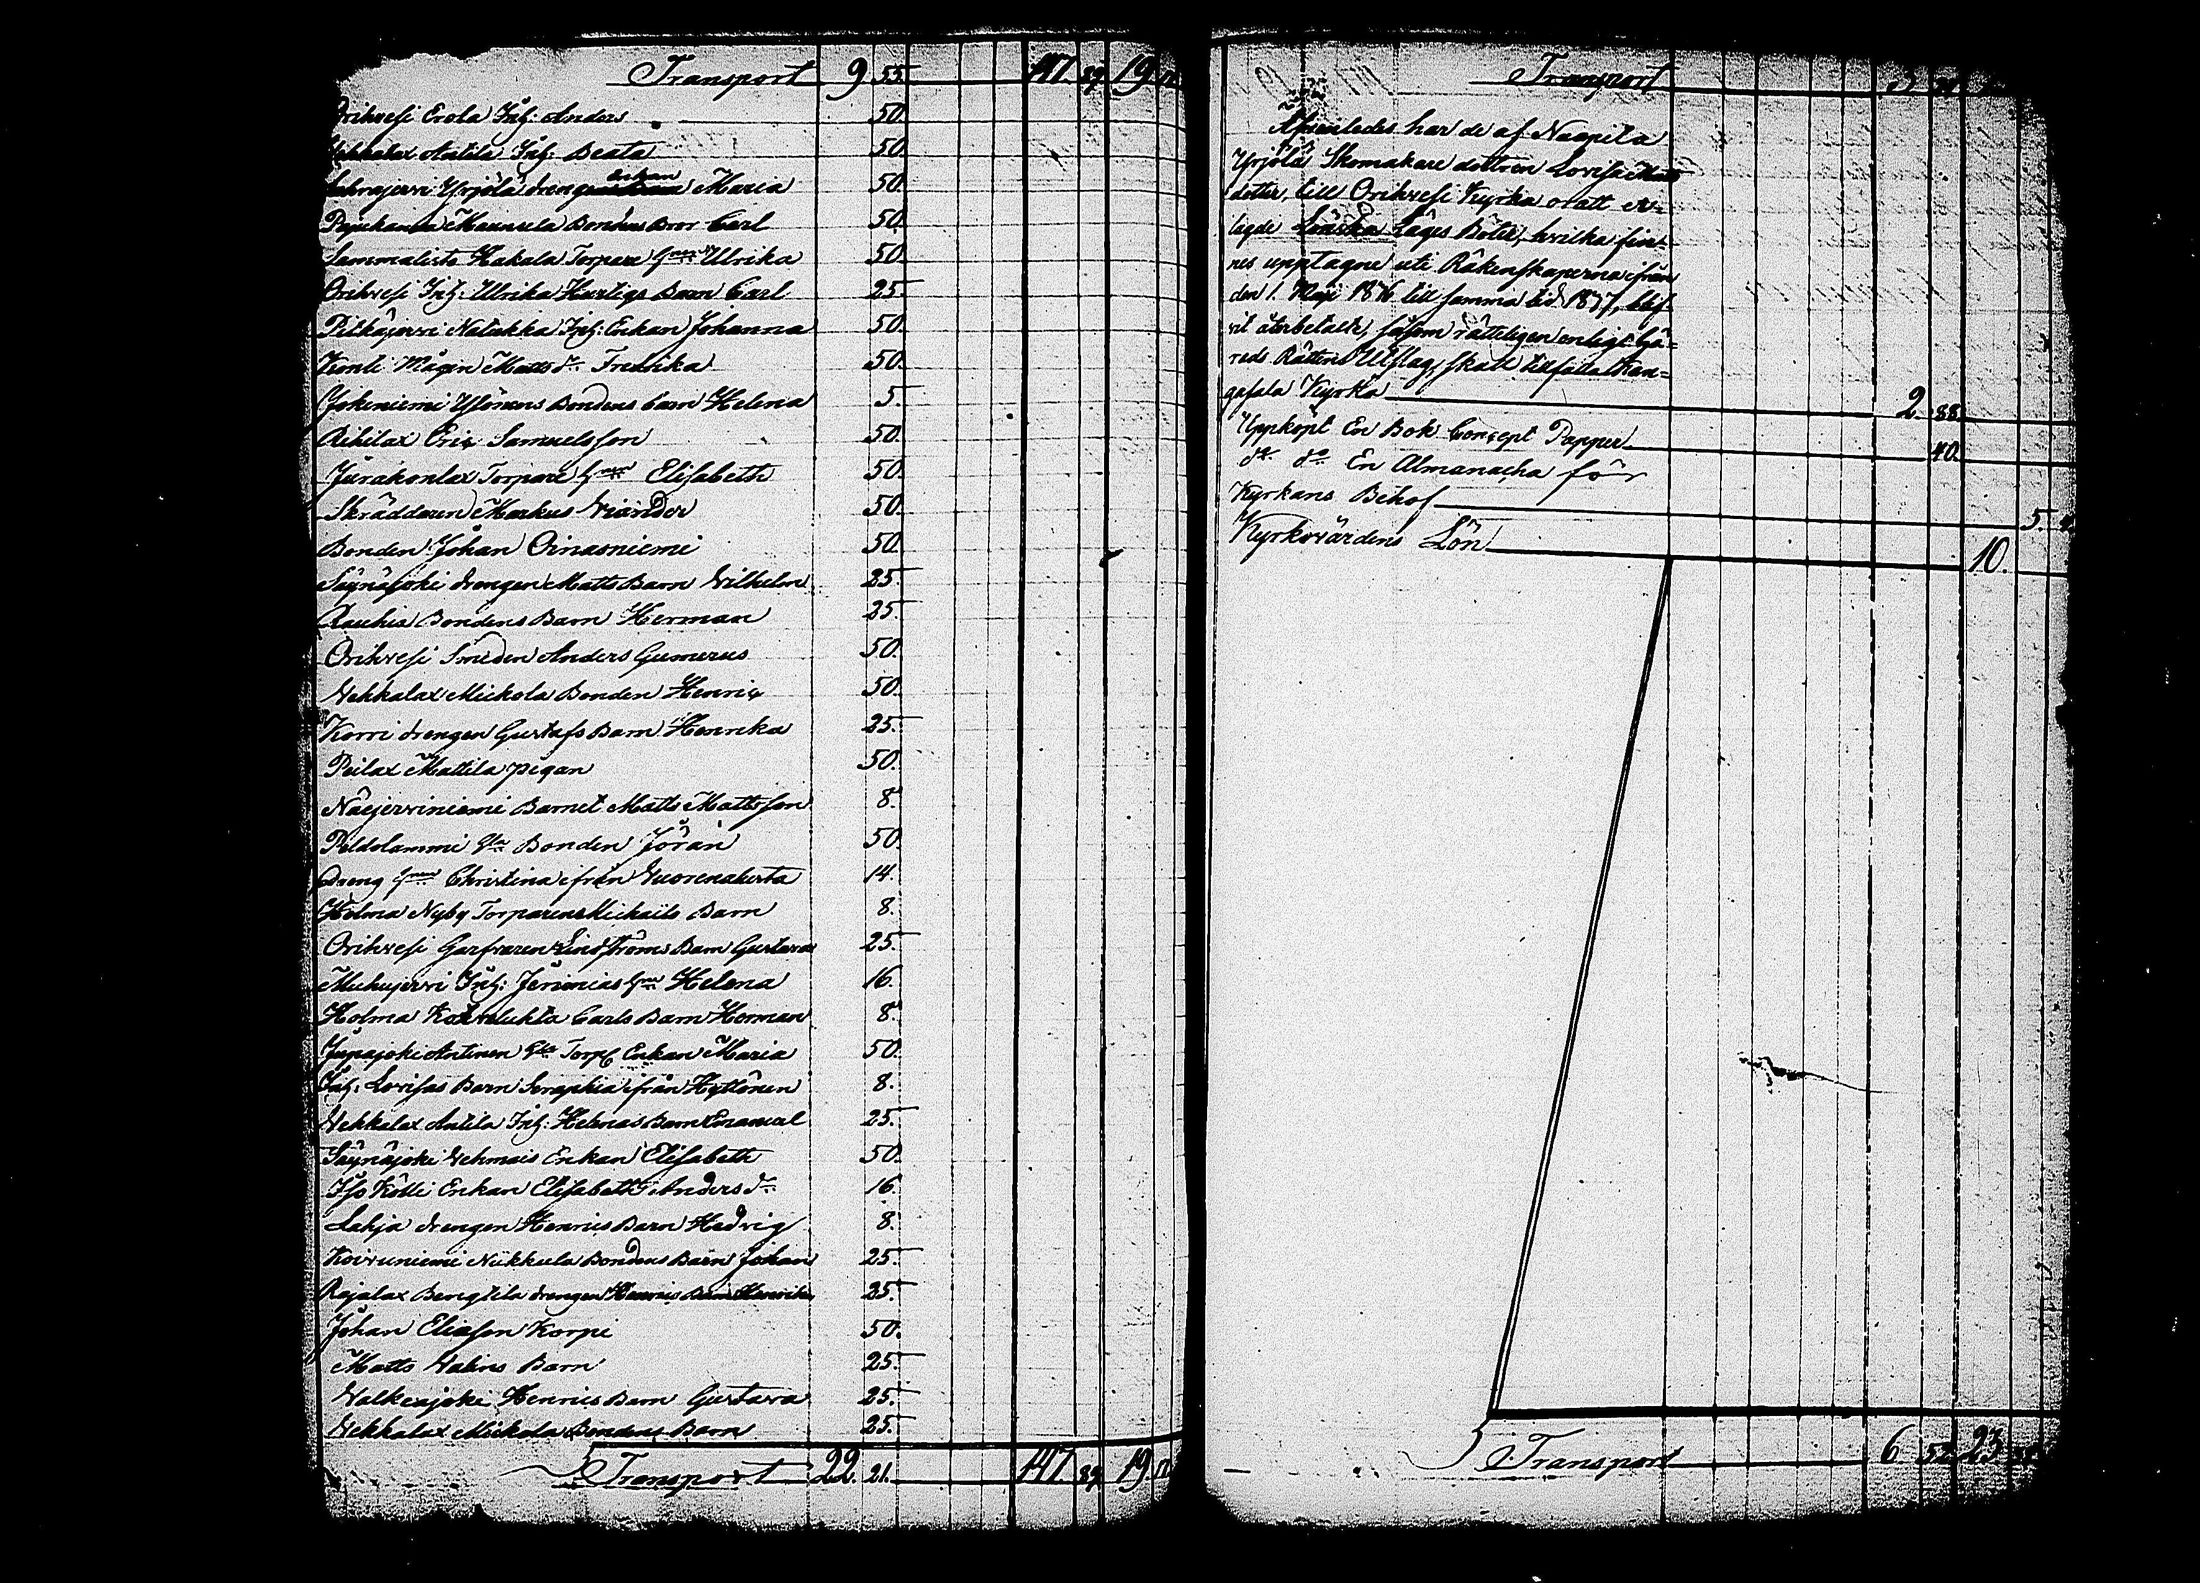 Transport 9 55 147 89 19
Orihvesi Erola Inh: Anders 50.
Wekkalax Antila Inh: Beata 50.
Yrjölä drengen Enkan Maria 50.
Maunula Bondens Bror Carl 50.
Sammalisto Hakala Torpare Gum: Ulrika 50.
Orihvesi Inh: Ulrika Hurtigs Barn Carl 25.
Pitkäjervi Natukka Inh: Enkan Johanna 50.
Matts dr Fredrika 50.
Jokiniemi Yllönens Bondens barn Helena 5.
Rihilax Eric Samuelsson 50.
Torpare Gum: Elisabeth 50.
Skräddaren Markus Wiander 50.
Bonden Johan Oinasniemi 50.
Säynäjoki drengen Matts Barn Wilhelm 25.
Rauhia Bondens Barn Herman 25.
Orihvesi Smeden Anders Gumerus 50.
Wekkalax Mickola Bonden Henric 50.
Korri drengen Gustafs Barn Henrika 25.
Peilax Mattila pigan 50.
Näejerviniemi Barnet Matts Mattsson 8.
Peldolammi Gla Bonden Jöran 50.
Dreng Gum: Christina ifrån Vuorenalusta 14.
Holma Nyby Torparens Michaels Barn 8.
Orihvesi Garfvaren Lindströms Barn Gustava 25.
Inh: Jeremias Gum: Helena 16.
Holma Carls Barn Herman 8.
Antinen Gla Torp: Enkan Maria 50.
Inh: Lovisas Barn Seraphia ifrån Hyttönen 8.
Wekkalax Antila Inh: Helenas Barn Emanuel 25.
Säynäjoki Wehmais Enkan Elisabeth 50.
Iso Kölli Enkan Elisabeth Anders dr 16.
Lahja drengen Henrics Barn Hedvig 8.
Koivuniemi Nikkula Bondens Barn Johan 25.
Rajalax Bengtila drengen Henrics Barn Henrika 25.
Johan Eliasson Korpi 50.
Matts Walins Barn 25.
Walkeajoki Henrics Barn Gustava 25.
Wekkalax Mickola Bondens Barn 25.
Transport 22 21. 147 89 19
Transport 3
Äfvenledes har de af Naapila
Yrjölä Skomakare dottren Lovisa Matts
dotter, till Orihvesi Kyrka orätt er=
lagde Lönska Läges Böter, hvilka fin=
nes upptagne uti Räkenskaperna ifrån
den 1. Maji 1836 till samma tid 1837, blif=
vit återbetalt, såsom rätteligen enligt Hä=
rads Rättens Utslag, skall tillfalla Kan=
gasala Kyrka 2. 88
Uppköpt En Bok Concept Papper 40.
do do En Almanacha för
Kyrkans Behof 5.
Kyrkovärdens Lön 10.
Transport 6 52 23